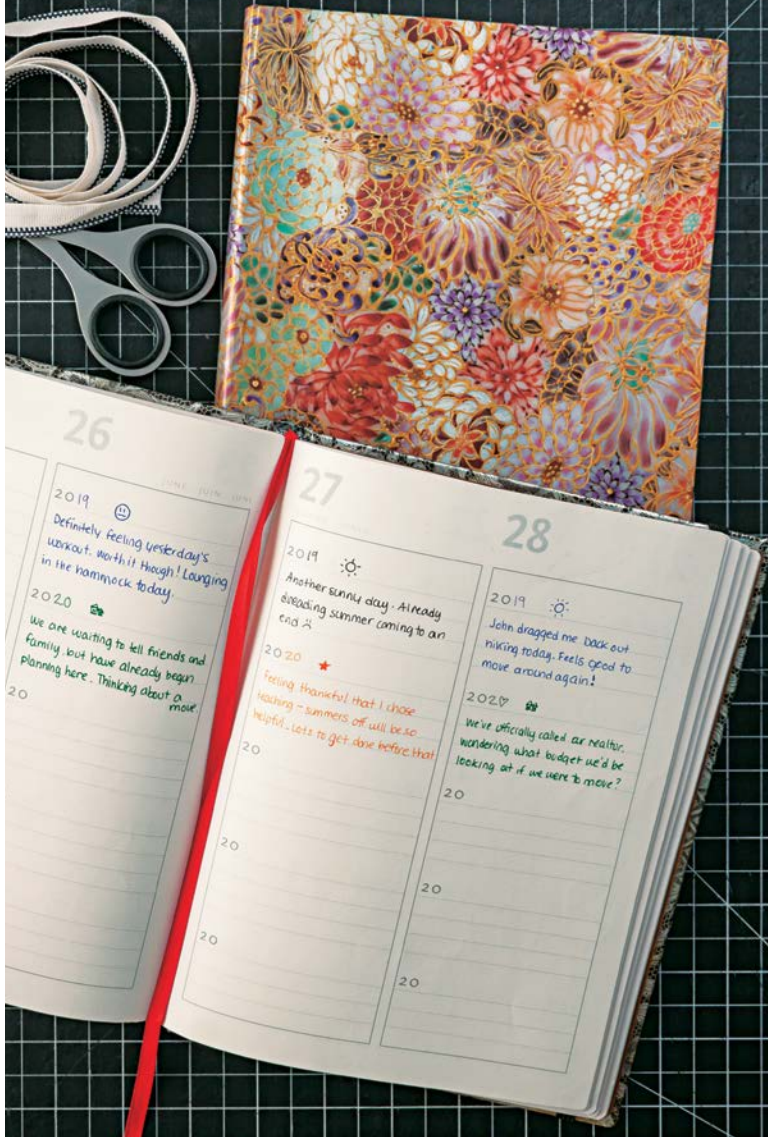 26
JUNE JUIN JUNI
2019
Definitely feeling yesterday's
workout. worth it though! Lounging
in the hammock today.
2020
We are waiting to tell friends and
family, but have already begun
planning here. Thinking about a
move.
20
27
2019
Another sunny day. Already
dreading summer coming to an
end
2020
Feeling thankful that I chose
teaching - summers off will be so
helpful. Lots to get done before that
20
20
20
28
2019
John dragged me back out
hiking today. Feels good to
move around again!
2020
We've officially called our realtor.
wondering what budget we'd be
looking at if we were to move?
20
20
20